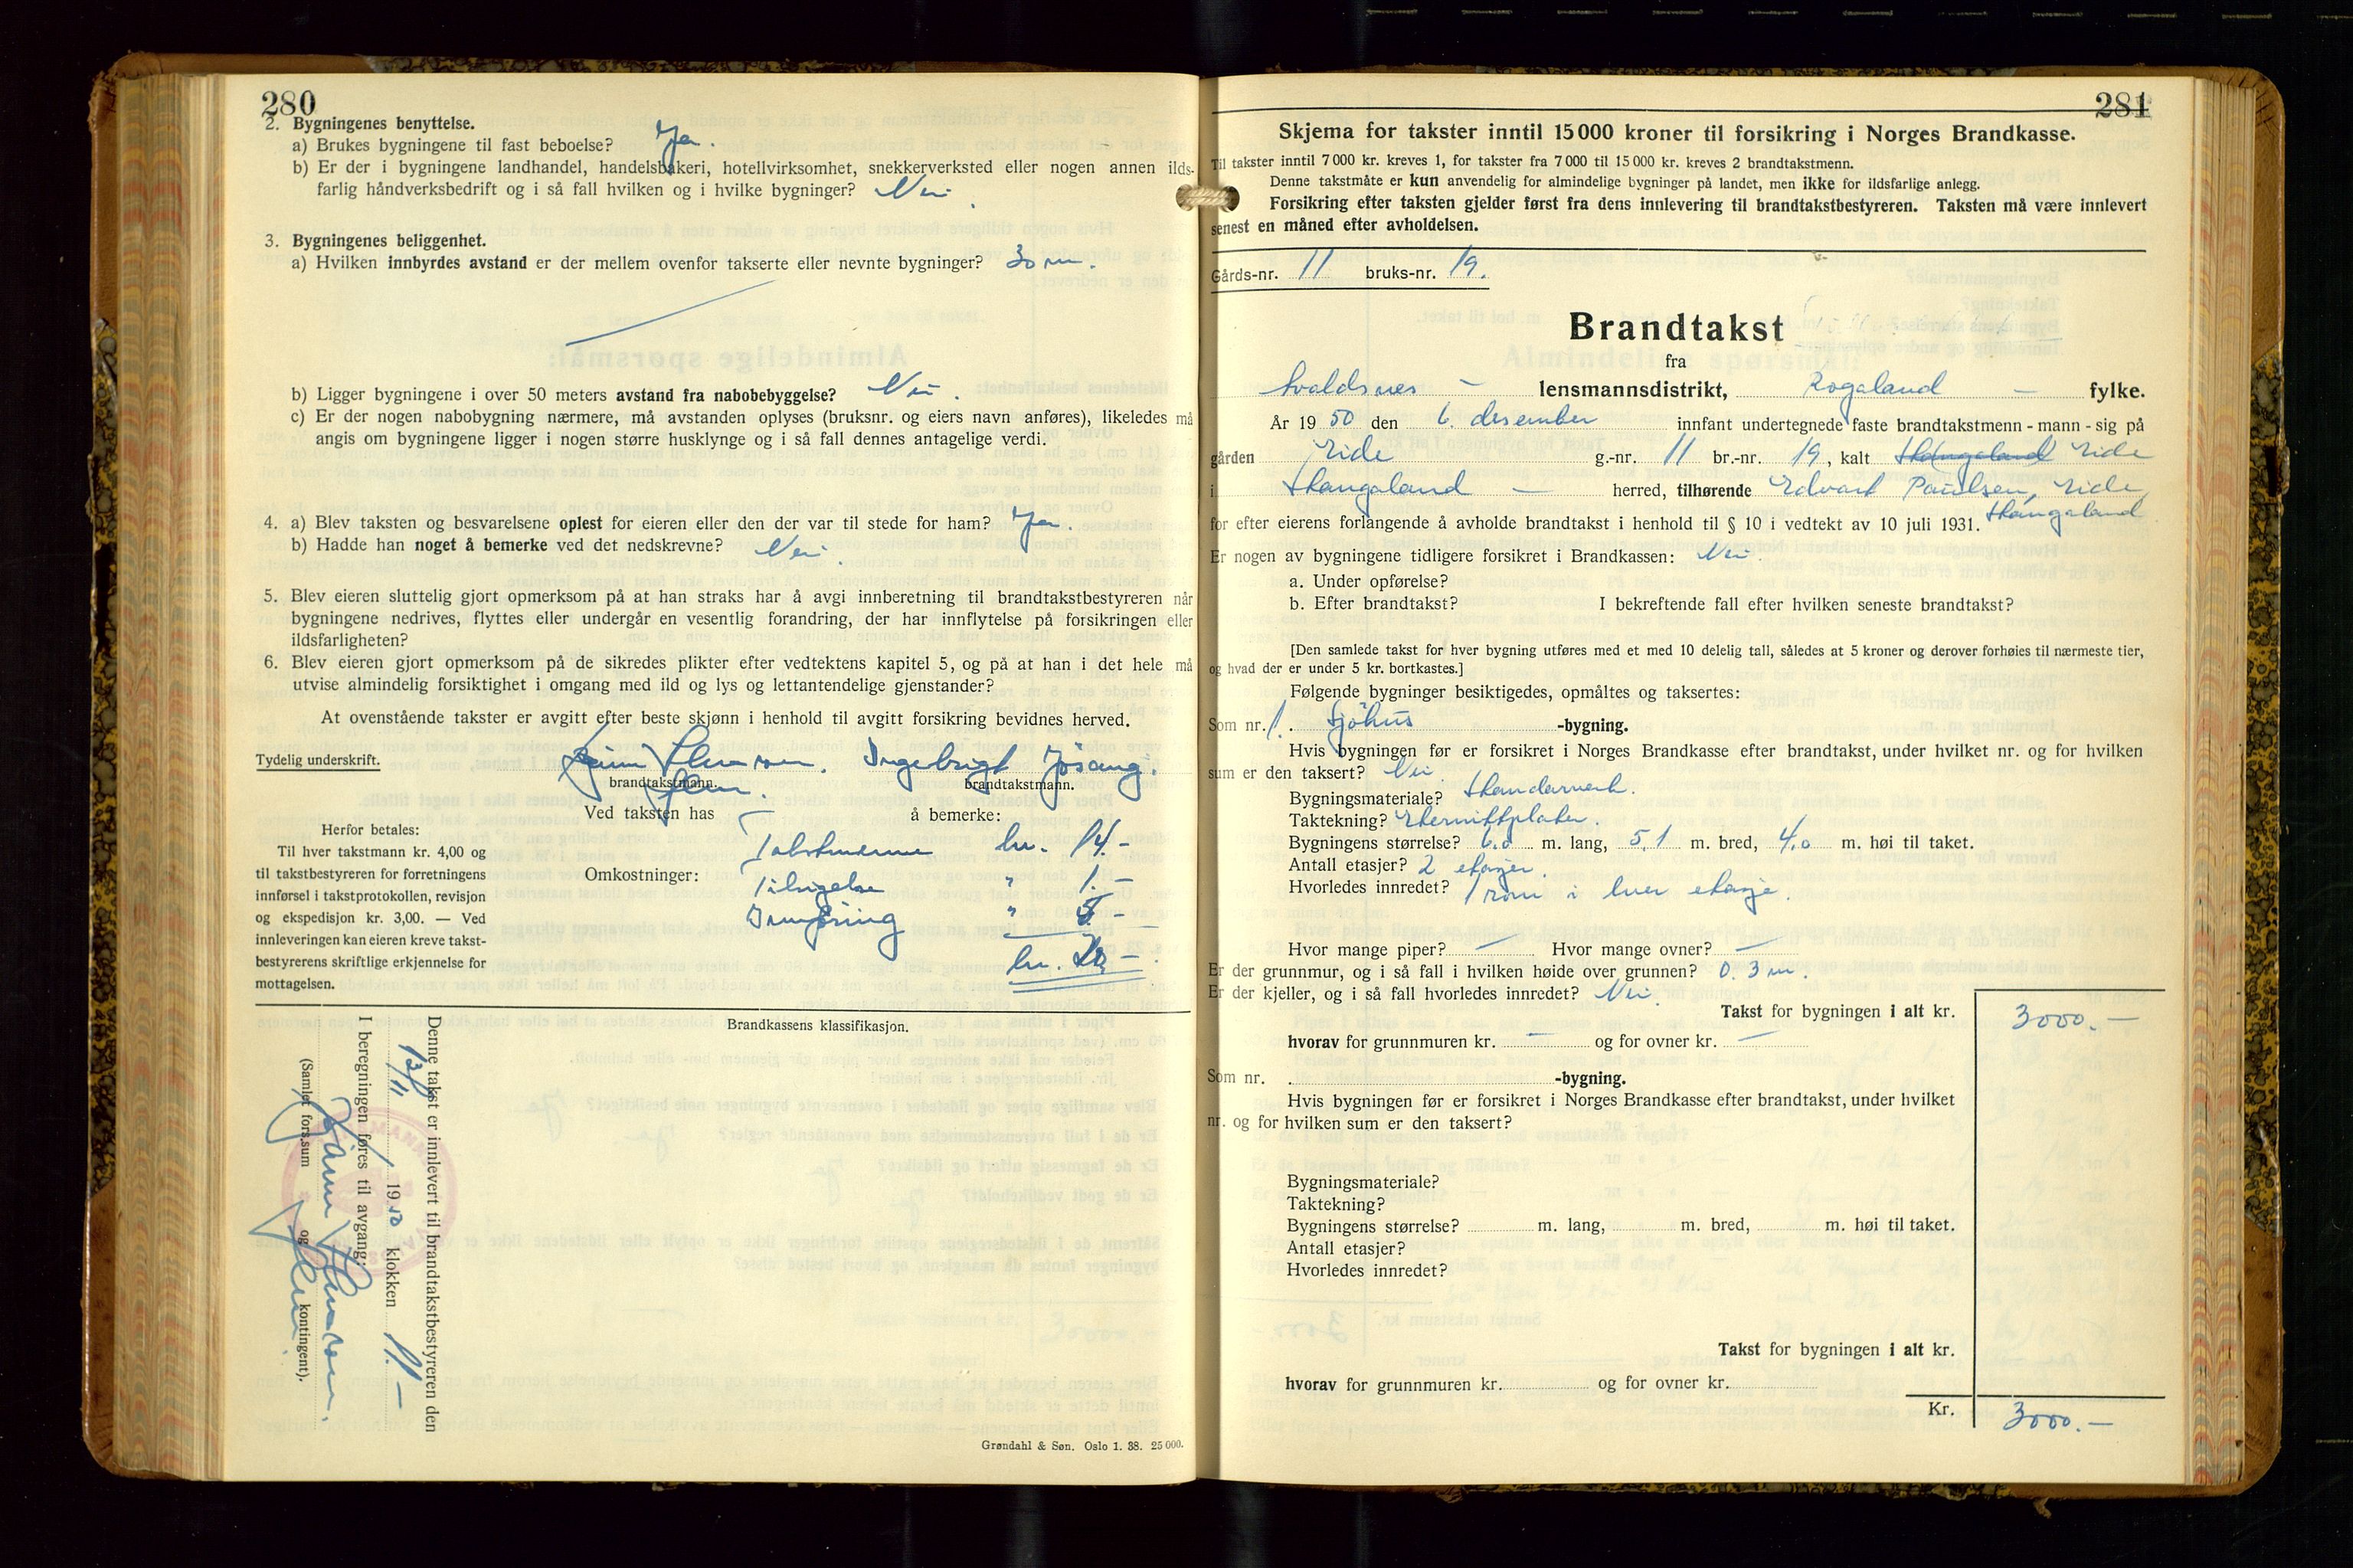 280
2. Bygningenes benyttelse.
a) Brukes bygningene til fast beboelse? Ja.
b) Er der i bygningene landhandel, handelsbakeri, hotellvirksomhet, snekkerverksted eller nogen annen ilds-
farlig håndverksbedrift og i så fall hvilken og i hvilke bygninger? Nei.
3. Bygningenes beliggenhet.
a) Hvilken innbyrdes avstand er der mellem ovenfor takserte eller nevnte bygninger? 30 m.
b) Ligger bygningene i over 50 meters avstand fra nabobebyggelse? Nei.
c) Er der nogen nabobygning nærmere, må avstanden oplyses (bruksnr. og eiers navn anføres), likeledes må
angis om bygningene ligger i nogen større husklynge og i så fall dennes antagelige verdi.
4. a) Blev taksten og besvarelsene oplest for eieren eller den der var til stede for ham? Ja.
b) Hadde han noget å bemerke ved det nedskrevne? Nei.
5. Blev eieren sluttelig gjort opmerksom på at han straks har å avgi innberetning til brandtakstbestyreren når
bygningene nedrives, flyttes eller undergår en vesentlig forandring, der har innflytelse på forsikringen eller
ildsfarligheten?
6. Blev eieren gjort opmerksom på de sikredes plikter efter vedtektens kapitel 5, og på at han i det hele må
utvise almindelig forsiktighet i omgang med ild og lys og lettantendelige gjenstander?
At ovenstående takster er avgitt efter beste skjønn i henhold til avgitt forsikring bevidnes herved.
Tydelig underskrift. Ingebrigt Jösang.
brandtakstmann. brandtakstmann.
Ved taksten has å bemerke:
Herfor betales:
Til hver takstmann kr. 4,00 og
til takstbestyreren for forretningens
innførsel i takstprotokollen, revisjon
og ekspedisjon kr. 3,00. — Ved
innleveringen kan eieren kreve takst-
bestyrerens skriftlige erkjennelse for
mottagelsen.
Omkostninger:
Takstmenn kr. 14.-
" 1.-
Innføring " 5-
kr. 20-
Brandkassens klassifikasjon.
Denne takst er innlevert til brandtakstbestyreren den
13/11 1950 klokken 11.-
I beregningen føres til avgang:
(Samlet fors.sum og kontingent).
Grøndahl & Søn. Oslo 1. 38. 25 000.
281
Skjema for takster inntil 15 000 kroner til forsikring i Norges Brandkasse.
Til takster inntil 7 000 kr. kreves 1, for takster fra 7 000 til 15 000 kr. kreves 2 brandtakstmenn.
Denne takstmåte er kun anvendelig for almindelige bygninger på landet, men ikke for ildsfarlige anlegg.
Forsikring efter taksten gjelder først fra dens innlevering til brandtakstbestyreren. Taksten må være innlevert
senest en måned efter avholdelsen.
Gårds-nr. 11 bruks-nr. 19.
Brandtakst
fra
Avaldsnes - lensmannsdistrikt, Rogaland - fylke.
År 1950 den 6. desember innfant undertegnede faste brandtakstmenn - mann - sig på
gården Eide g.-nr. 11 br.-nr. 19, kalt Skangaland Eide
i Skangaland - herred, tilhørende Edvart Paulsen, Eide,
Skangaland
for efter eierens forlangende å avholde brandtakst i henhold til § 10 i vedtekt av 10 juli 1931.
Er nogen av bygningene tidligere forsikret i Brandkassen: Nei
a. Under opførelse?
b. Efter brandtakst? I bekreftende fall efter hvilken seneste brandtakst?
[Den samlede takst for hver bygning utføres med et med 10 delelig tall, således at 5 kroner og derover forhøies til nærmeste tier,
og hvad der er under 5 kr. bortkastes.]
Følgende bygninger besiktigedes, opmåltes og taksertes:
Som nr. 1. Sjöhus -bygning.
Hvis bygningen før er forsikret i Norges Brandkasse efter brandtakst, under hvilket nr. og for hvilken
sum er den taksert? Nei.
Bygningsmateriale? Standarverk.
Taktekning? Eternittplater.
Bygningens størrelse? 6.0 m. lang, 5,1 m. bred, 4.0 m. høi til taket.
Antall etasjer? 2 etasjer.
Hvorledes innredet? 1 rom i hver etasje.
Hvor mange piper? — Hvor mange ovner? —
Er der grunnmur, og i så fall i hvilken høide over grunnen? 0.3 m.
Er der kjeller, og i så fall hvorledes innredet? Nei
Takst for bygningen i alt kr. 3000.-
hvorav for grunnmuren kr. — og for ovner kr. —
Som nr. -bygning.
Hvis bygningen før er forsikret i Norges Brandkasse efter brandtakst, under hvilket
nr. og for hvilken sum er den taksert?
Bygningsmateriale?
Taktekning?
Bygningens størrelse? m. lang, m. bred, m. høi til taket.
Antall etasjer?
Hvorledes innredet?
Takst for bygningen i alt kr.
hvorav for grunnmuren kr. og for ovner kr.
Kr. 3000.-